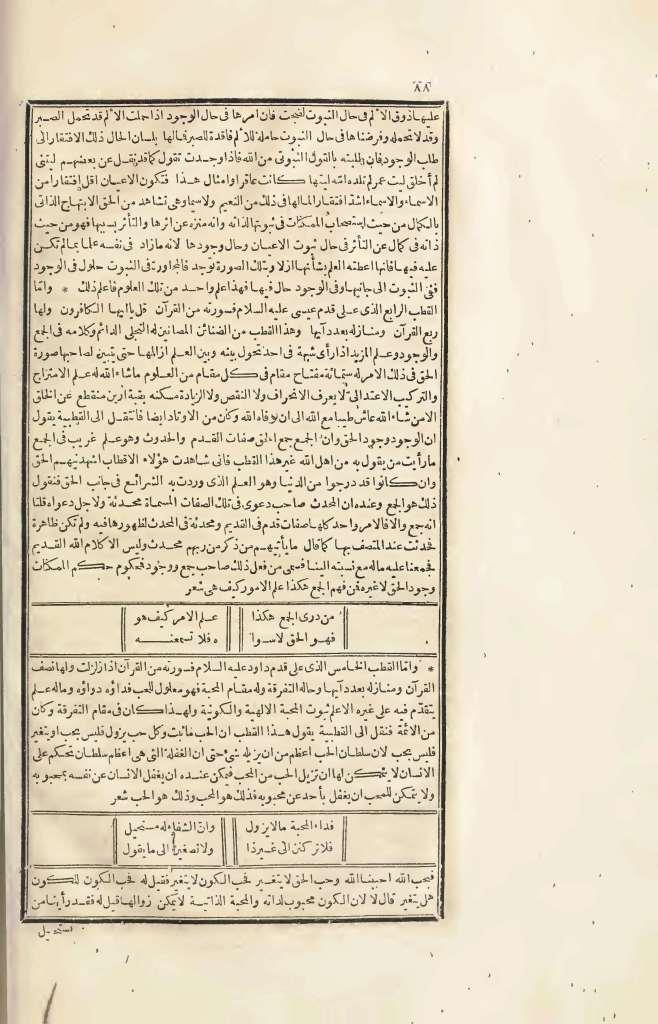 ٨٨
عليها ذوق الألم في حال الثبوت لضجت فان امرها في حال الوجود اذا حملت الالم قد تحمل الصبر
وقد لا تحمله وفرضناها في حال الثبوت حاملة للالم فاقدة للصبر فمالها بلسان الحال ذلك الافتقار الى
طلب الوجود فان طلبته بالقول الثبوتى من الله فاذا وجدت تقول كما قد نقل عن بعضهم ليتنى
لم أخلق ليت عمر لم تلده امه ليتها كانت عاقرا وامثال هذا فتكون الاعيان اقل افتقارا من
الاسماء والاسماء اشد افتقارا لمالها فى ذلك من النعيم ولا سيما وهى تشاهد من الحق الابتهاج الذاتى
بالكمال من حيث استصحاب الممكنات فى ثبوتها لذاته وانه منزه عن اثرها والتأثر بسببها فهو من حيث
ذاته فى كمال عن التأثر فى حال ثبوت الاعيان وحال وجودها لانه مازاد فى نفسه علما بما لم تكن
عليه فيها فانها اعطته العلم بشأنها ازلا وبتلك الصورة توجد فالمجاورة فى الثبوت حلول فى الوجود
ففى الثبوت الى جانبها وفى الوجود حال فيها فهذا علم واحد من تلك العلوم فاعلم ذلك * واما
القطب الرابع الذى على قدم عيسى عليه السلام فسورته من القرآن قل يا ايها الكافرون ولها
ربع القرآن ومنازله بعدد آيها وهذا القطب من الضنائن المصانين له التجلى الدائم وكلامه فى الجمع
والوجود وعلم المزيد اذا رأى شبهة فى احد تحول بينه وبين العلم ازالها حتى يتبين لصاحبها صورة
الحق فى ذلك الامر له ستمائة مفتاح مقام فى كل مقام من العلوم ما شاء الله له علم الامتزاج
والتركيب الاعتدالى لا يعرف الانحراف ولا النقص ولا الزيادة مسكنه بقبة ارين منقطع عن الخلق
الا من شاء الله عاش طيبا مع الله الى ان توفاه الله وكان من الاوتاد ايضا فانتقل الى القطبية يقول
ان الوجود وجود الحق وان الجمع جمع الحق صفات القدم والحدوث وهو علم غريب فى الجمع
ما رأيت من يقول به من اهل الله غير هذا القطب فانى شاهدت هؤلاء الاقطاب اشهدنيهم الحق
وان كانوا قد درجوا من الدنيا وهو العلم الذى وردت به الشرائع فى جانب الحق فنقول
ذلك هو الجمع وعنده ان المحدث صاحب دعوى فى تلك الصفات المسماة محدثة ولاجل دعواه قلنا
انه جمع والا فالامر واحد كلها صفات قدم فى القديم ومحدثة فى المحدث لظهورها فيه ولم تكن ظاهرة
فحدثت عند المتصف بها كما قال ما يأتيهم من ذكر من ربهم محدث وليس الا كلام الله القديم
فجمعنا عليه ماله مع نسبته الينا فسمى من فعل ذلك صاحب جمع ووجود فحكوم حكم الممكنات
وجود الحق لا غيره فمن فهم الجمع هكذا علم الامور كيف هى شعر
من درى الجمع هكذا علم الامر كيف هو
فهو الحق لا سوا ه فلا تسمعنه
* واما القطب الخامس الذى على قدم داود عليه السلام فسورته من القرآن اذا زلزلت ولها نصف
القرآن ومنازله بعدد آيها وحاله التفرقة وله مقام المحبة فهو معلول للحب فداؤه دواؤه وماله علم
يتقدم فيه على غيره الا علم ثبوت المحبة الالهية والكونية ولهذا كان فى مقام التفرقة وكان
من الائمة فنقل الى القطبية يقول هذا القطب ان الحب ما ثبت وكل حب يزول فليس بحب او يتغير
فليس بحب لان سلطان الحب اعظم من ان يزيله شئ حتى ان الغفلة التى هى اعظم سلطان تحكم على
الانسان لا يتمكن لها ان تزيل الحب من المحب فيمكن عنده ان يغفل الانسان عن نفسه بمحبوبه
ولا يتمكن للمحب ان يغفل بأحد عن محبوبه فذلك هو المحب وذلك هو الحب شعر
فداء المحبة مالا يزول وان الشفاء له مستحيل
فلا تركنن الى غير ذا ولا تصغين الى ما يقول
فبحب الله احببنا الله وحب الحق لا يتغير فحب الكون لا يتغير فقيل له فحب الكون للكون
هل يتغير قال لا لان الكون محبوب لذاته والمحبة الذاتية لا يمكن زوالها قيل له فقد رأينا من
استحيل